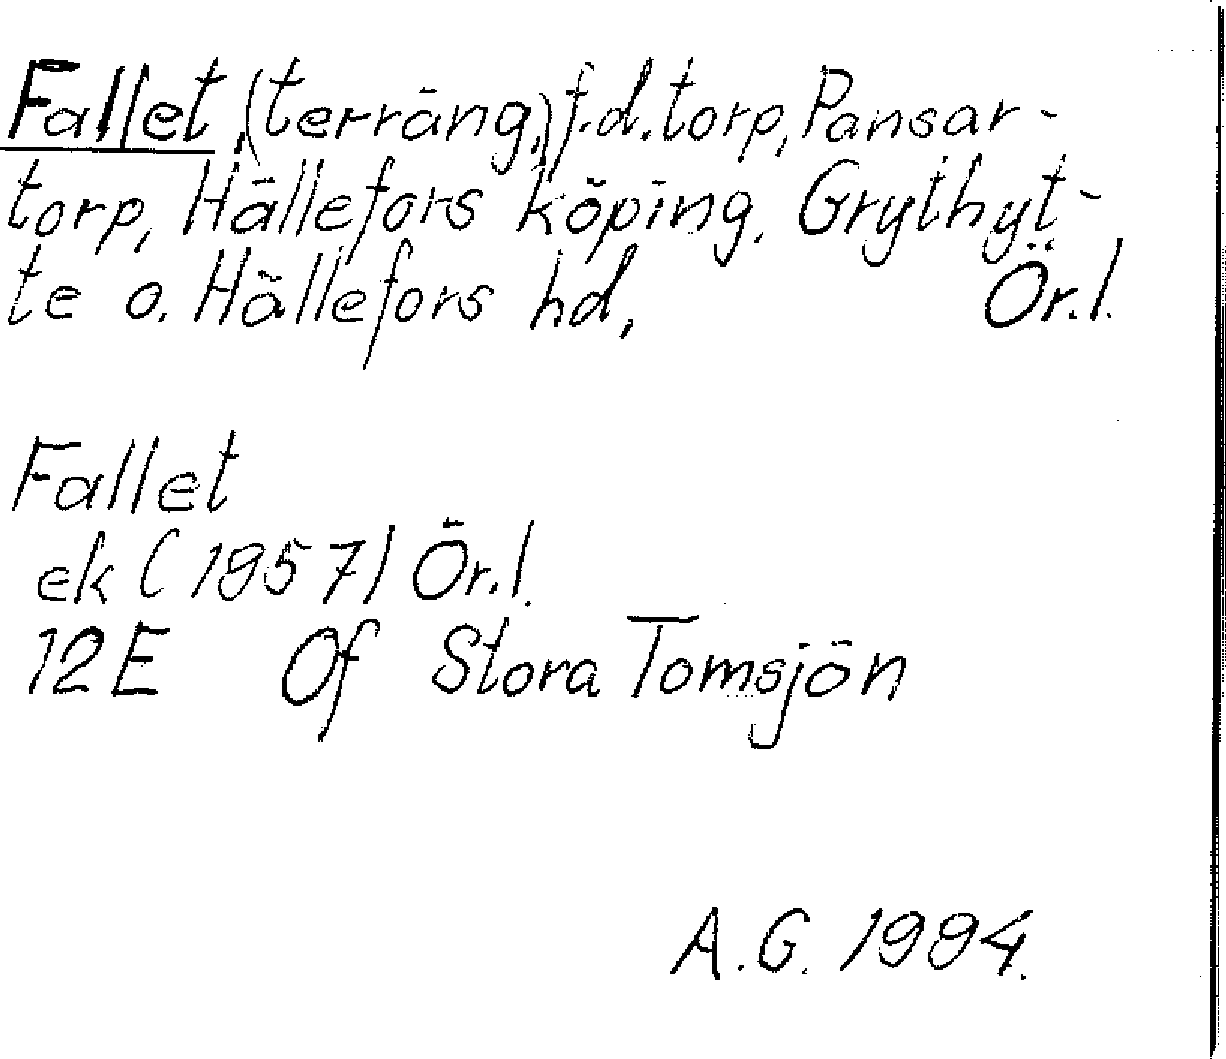 Fallet, (terräng,) f.d. torp, Pansar-
torp, Hällefors köping, Grythyt-
te o. Hällefors hd, Ör.l.
Fallet
ek (1957) Ör.l.
12E Of Stora Tomsjön
A.G. 1994.